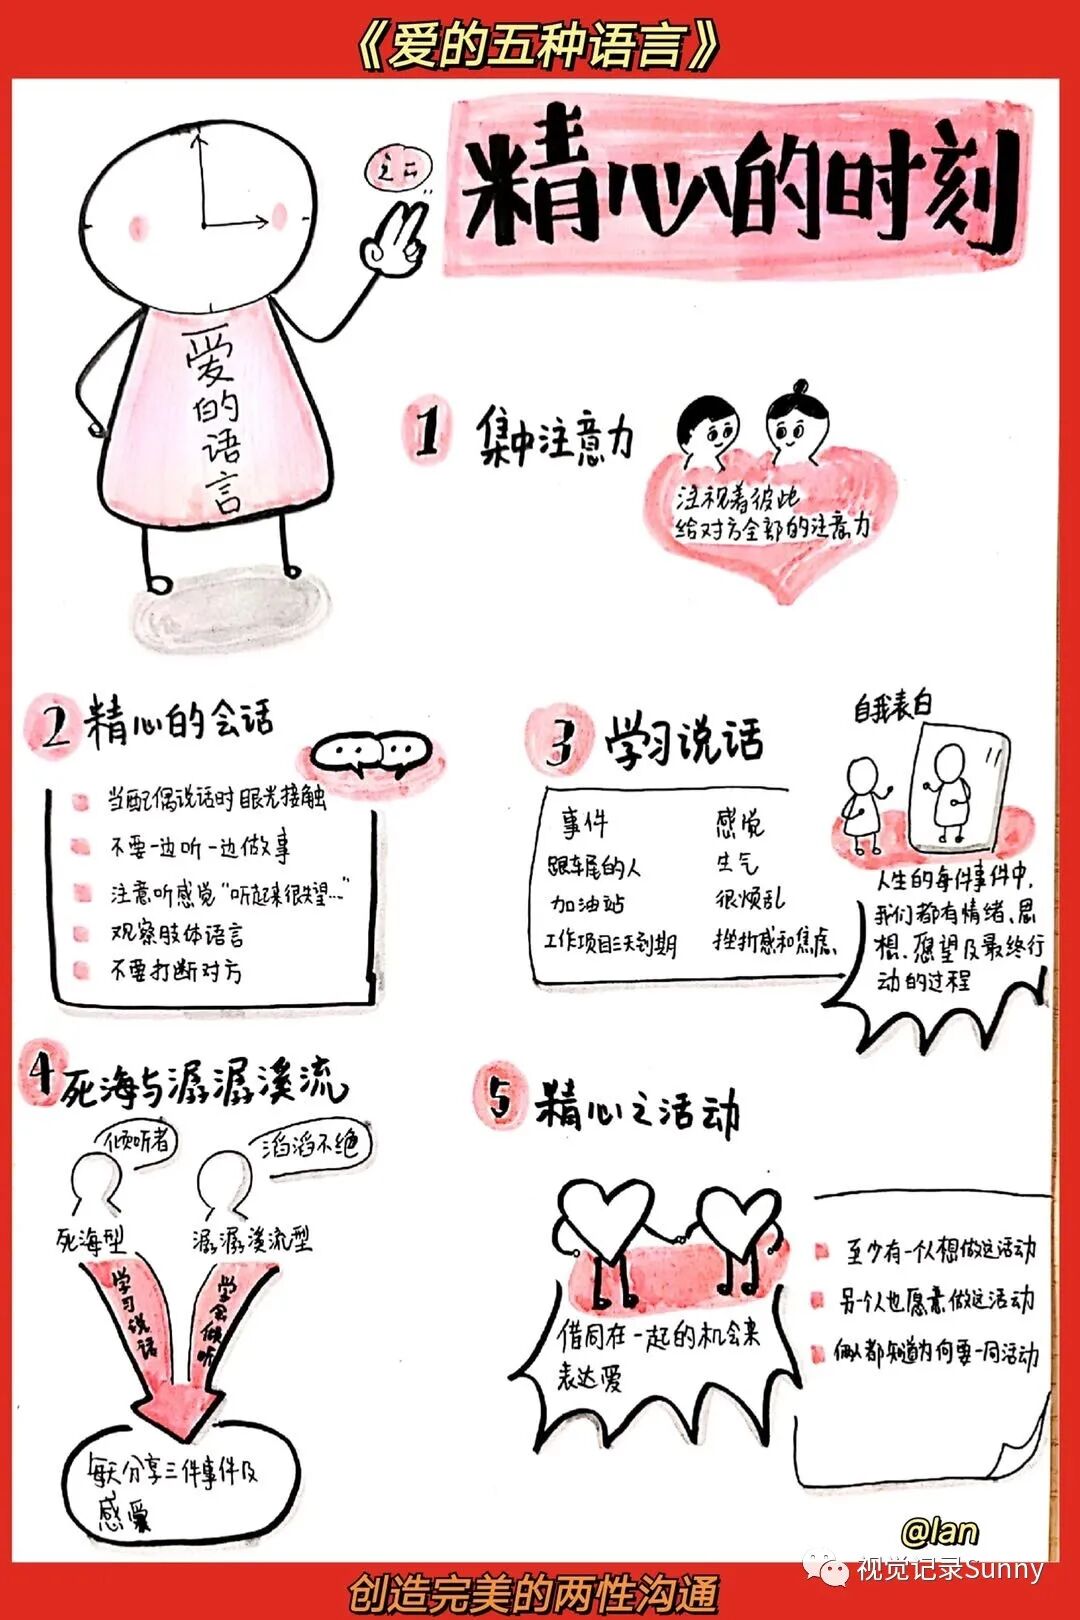 《爱的五种语言》
精心的时刻
之二
爱的语言
1 集中注意力
注视着彼此
给对方全部的注意力
2 精心的会话
当配偶说话时眼光接触
不要一边听一边做事
注意听感觉“听起来很失望…”
观察肢体语言
不要打断对方
3 学习说话
事件 感觉
跟车尾的人 生气
加油站 很烦乱
工作项目三天到期 挫折感和焦虑
自我表白
人生的每件事件中,
我们都有情绪、思
想、愿望及最终行
动的过程
4 死海与潺潺溪流
倾听者
滔滔不绝
死海型
潺潺溪流型
学习说话
学会倾听
每天分享三件事件及
感受
5 精心之活动
借同在一起的机会来
表达爱
至少有一个人想做这活动
另一个人也愿意做这活动
俩人都知道为何要一同活动
@lan
视觉记录Sunny
创造完美的两性沟通